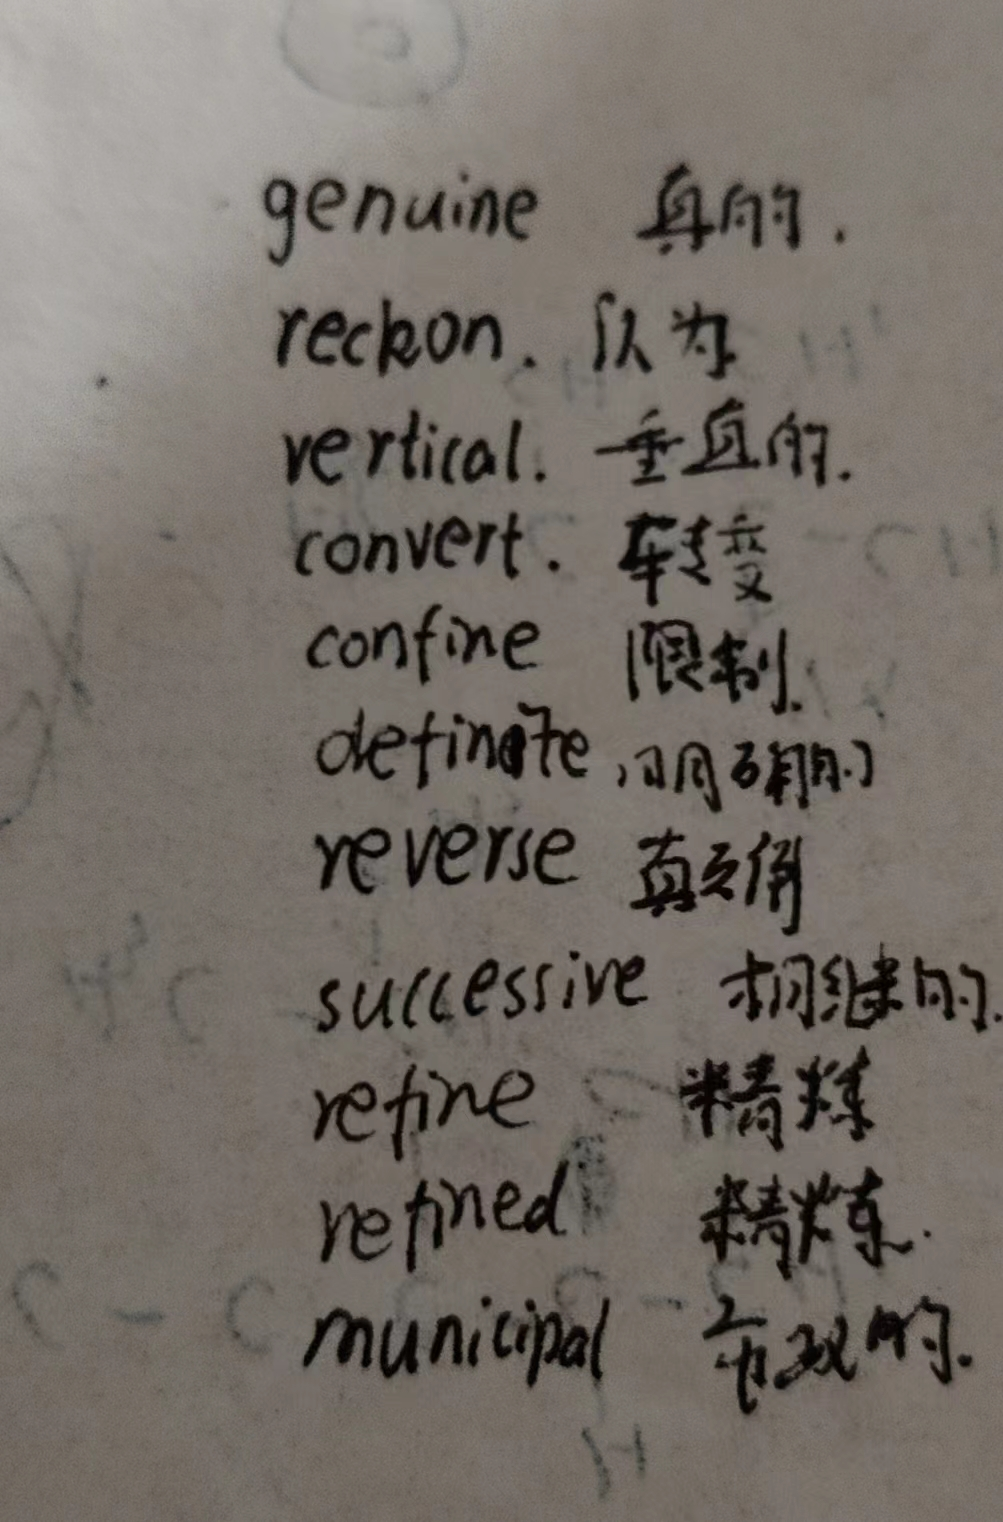 genuine 真的.
reckon. 认为
vertical. 垂直的.
convert. 转变
confine 限制.
definate 明确的
reverse 真倒
successive 相继的.
refine 精炼
refined 精炼.
municipal 市政的.